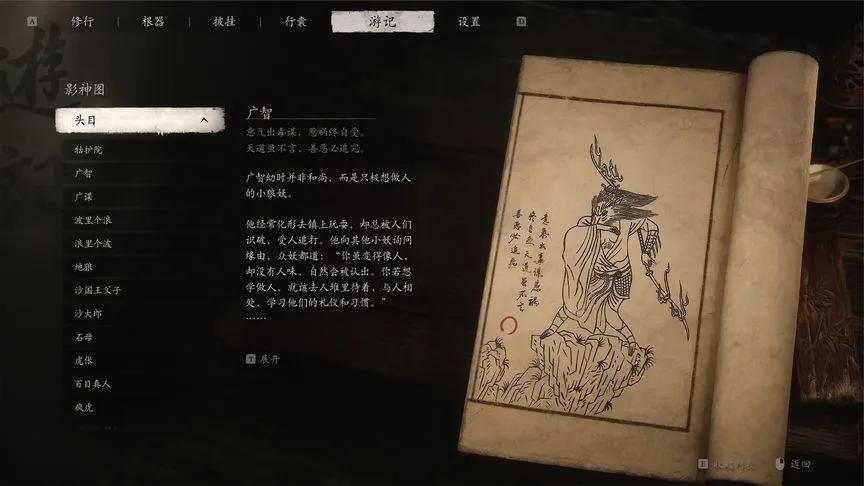 A 修行 根器 披挂 行囊 游记 设置 D
影神图
头目
牯护院
广智
广谋
波里个浪
浪里个波
地狼
沙国王父子
沙大郎
石母
虎伥
百目真人
疯虎
广智
意气出毒谋，愿祸终自受。
天道虽不言，善恶必追究。
广智幼时并非和尚，而是只极想做人
的小狼妖。
他经常化形去镇上玩耍，却总被人们
识破，受人追打。他向其他小妖询问
缘由，众妖都道：“你虽变得像人，
却没有人味，自然会被认出。你若想
学做人，就该去人堆里待着，与人相
处，学习他们的礼仪和习惯。”
……
T 展开
E 收起列表
返回